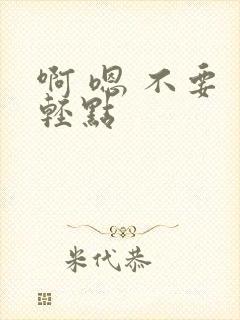 啊嗯不要
輕點
米代恭